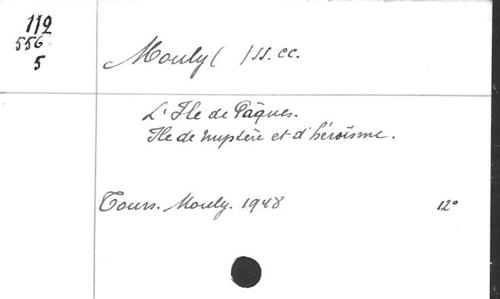 112
556
5
Mouly ( ) SS. CC.
L'Ile de Pâques.
Ile de mystère et d'héroïsme.
Tours. Mouly. 1948 12°